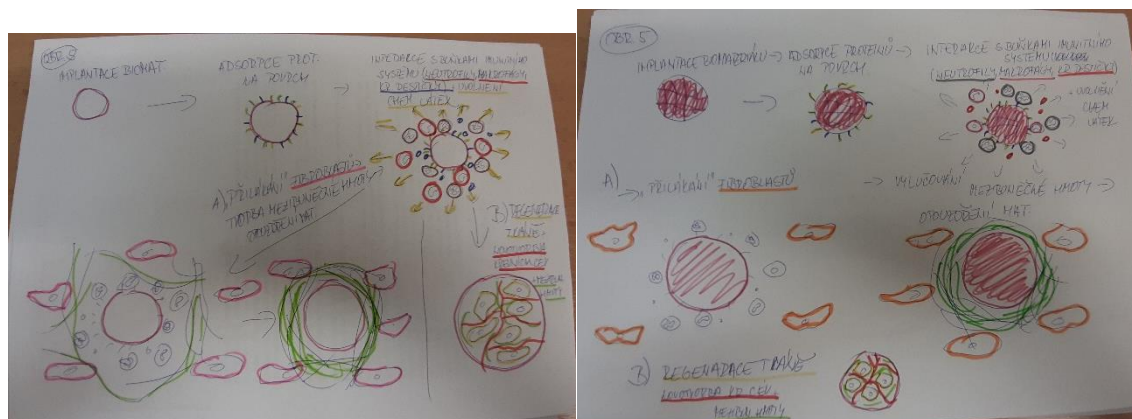 OBR 5
IMPLANTACE BIOMAT
ADSORPCE PROT.
NA POVRCH
INTERAKCE S BUŇKAMI IMUNITNÍHO
SYSTÉMU (NEUTROFILY, MAKROFÁGY,
KR. DESTIČKY)
UVOLNĚNÍ
CHEM LÁTEK
A) „PŘILÁKÁNÍ" FIBROBLASTŮ
TVORBA MEZIBUNĚČNÉ HMOTY
B) REGENERACE
TKÁNĚ
NOVOTVORBA
HMOTY
OBR 5
IMPLANTACE BIOMATERIÁLU
ADSORPCE PROTEINŮ
NA POVRCH
INTERAKCE S BUŇKAMI IMUNITNÍHO
SYSTÉMU
(NEUTROFILY, MAKROFÁGY, KR. DESTIČKY)
UVOLNĚNÍ
CHEM
LÁTEK
A)
„PŘILÁKÁNÍ" FIBROBLASTŮ
VYLUČOVÁNÍ
MEZIBUNĚČNÉ HMOTY
OPOUZDŘENÍ MAT.
B) REGENERACE TKÁNĚ
NOVOTVORBA KR. CÉV
HMOTY